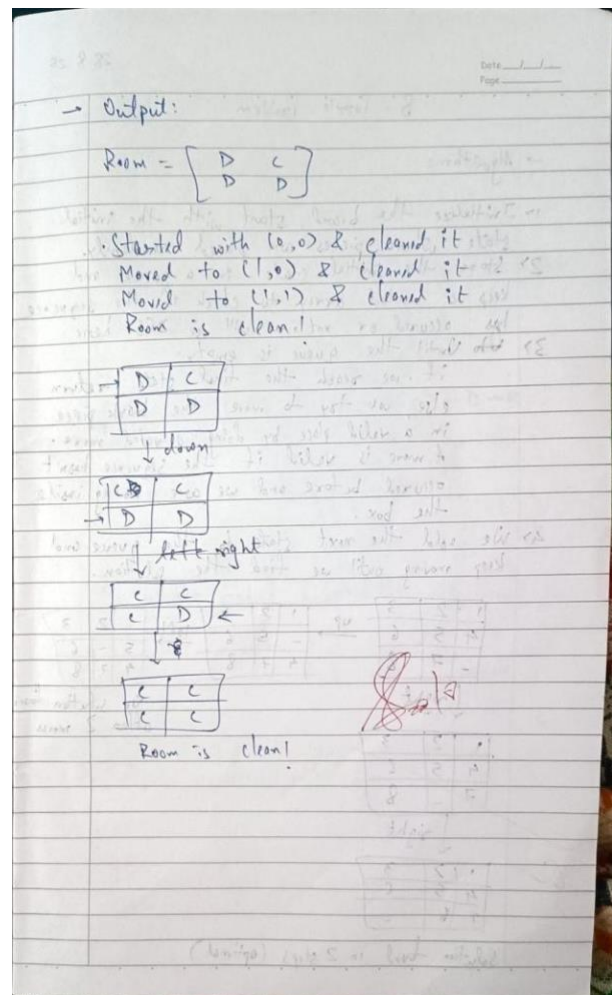 Date __/__/__
Page ______
→ Output:
Room = [ D C
D D ]
. Started with (0,0) & cleaned it
Moved to (1,0) & cleaned it
Moved to (1,1) & cleaned it
Room is clean!
→ D C
D D
↓ down
C C
→ D D
↓ right
C C
C D ←
↓
C C
C C
Room is clean!